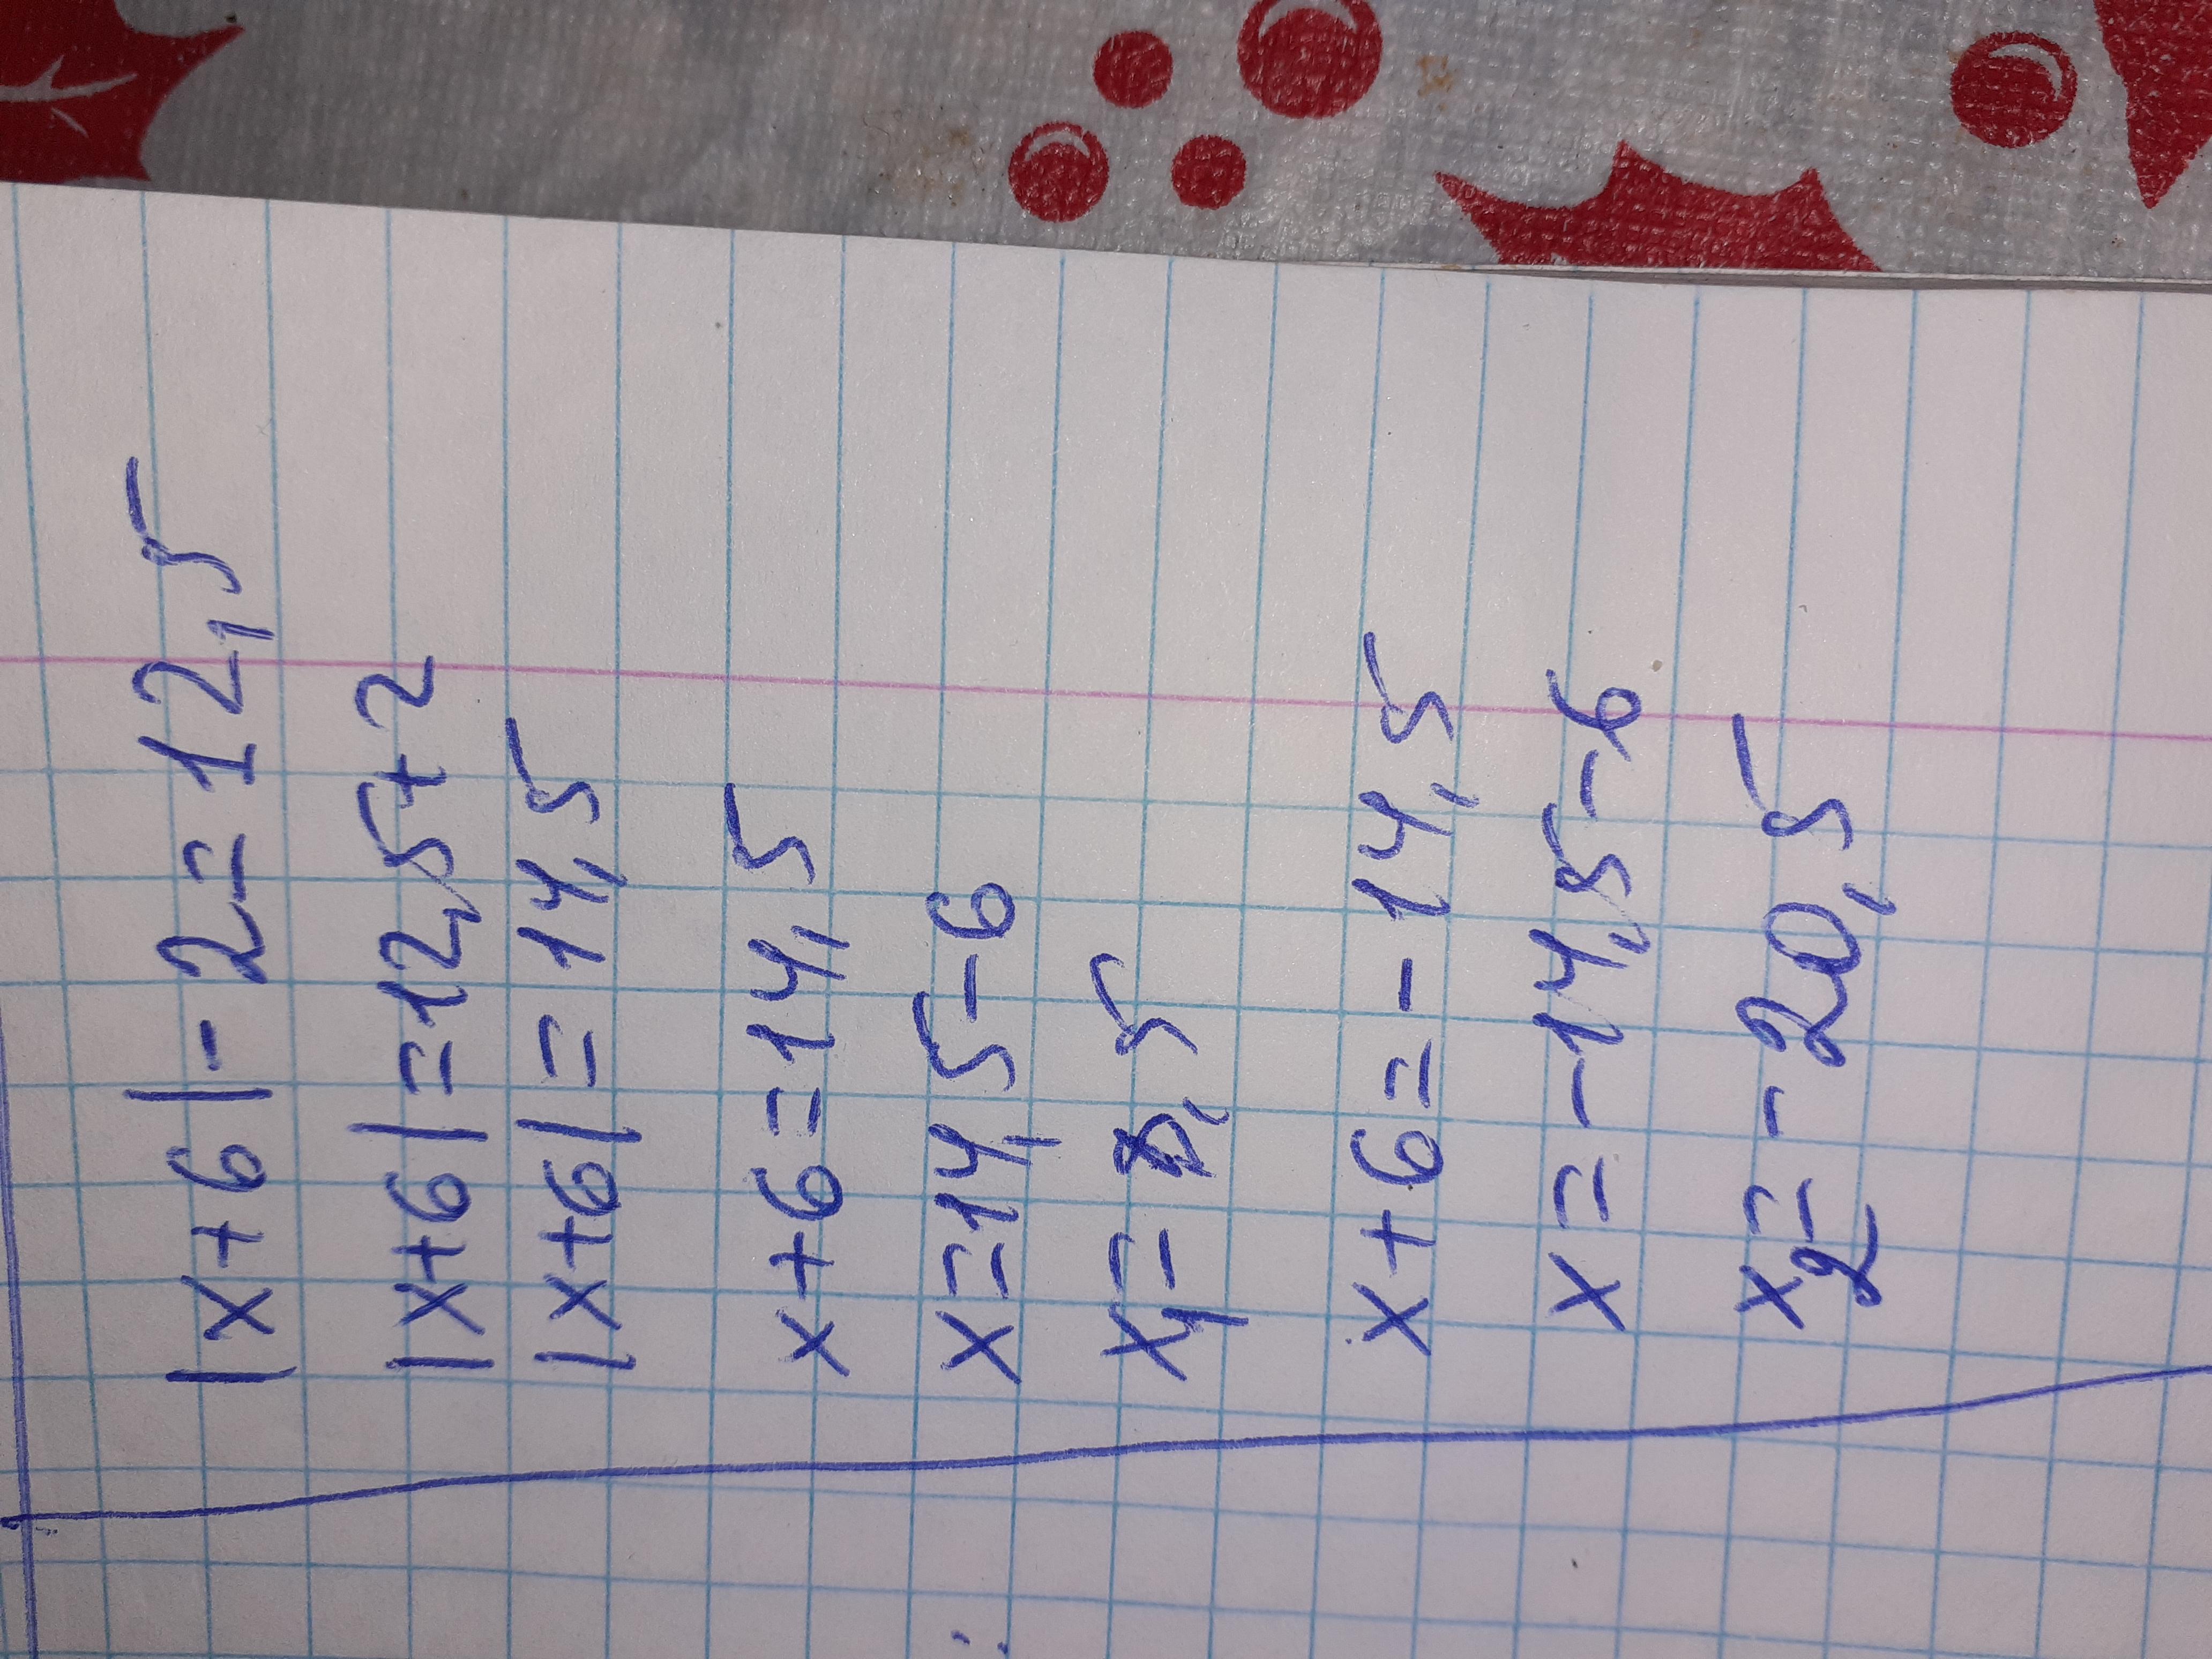 |x+6|-2=12,5
|x+6|=12,5+2
|x+6|=14,5
x+6=14,5
x=14,5-6
x₁=8,5
x+6=-14,5
x=-14,5-6
x₂=-20,5